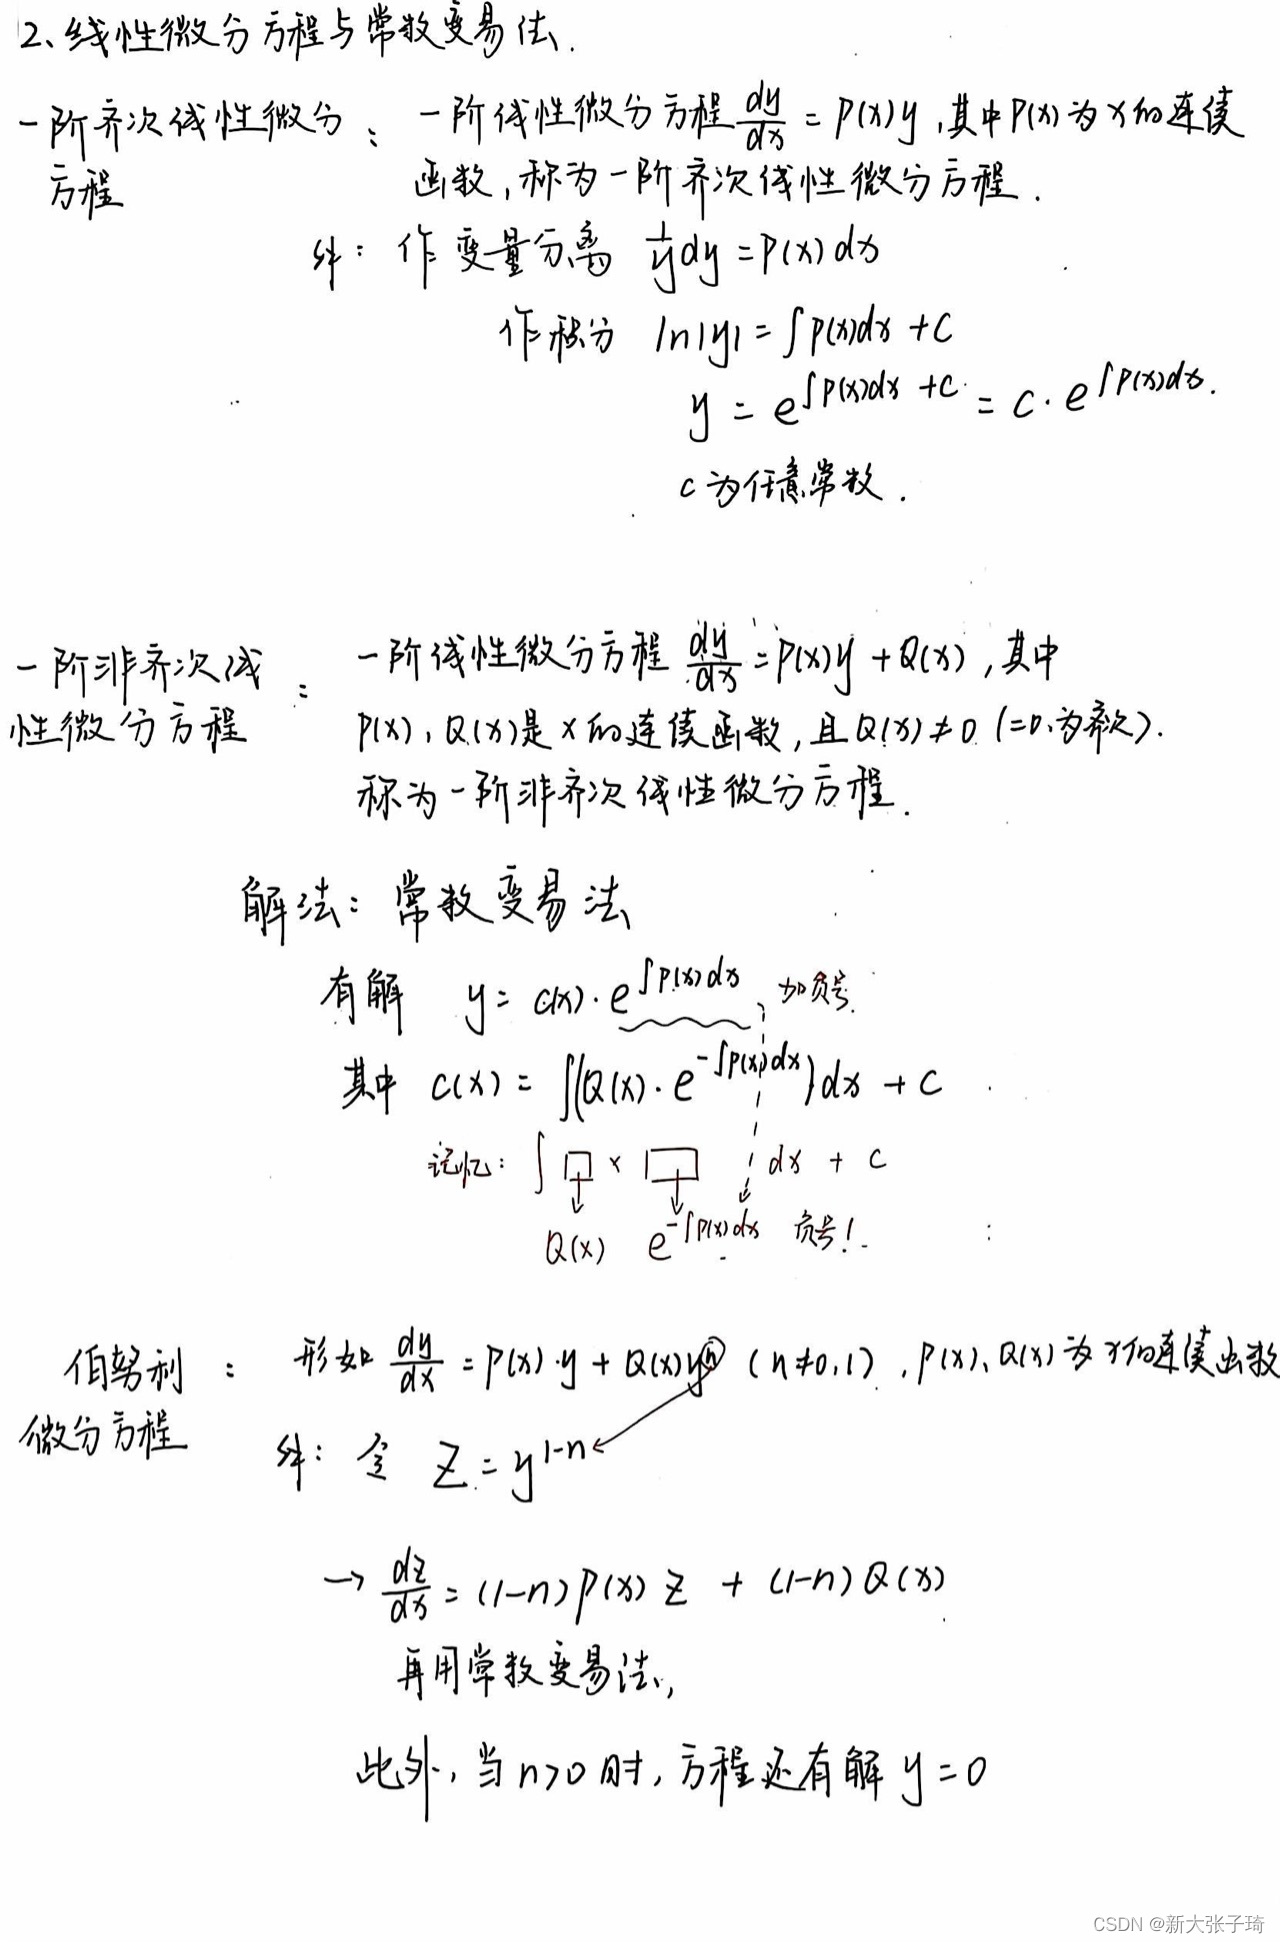 2、线性微分方程与常数变易法.
一阶齐次线性微分方程: 一阶线性微分方程 dy/dx = P(x)y ,其中P(x)为x的连续
函数,称为一阶齐次线性微分方程.
解: 作变量分离 1/y dy = P(x)dx
作积分 ln|y| = ∫P(x)dx + C
y = e^{∫P(x)dx + C} = C · e^{∫P(x)dx}.
C为任意常数.
一阶非齐次线性微分方程: 一阶线性微分方程 dy/dx = P(x)y + Q(x) ,其中
P(x),Q(x)是x的连续函数,且Q(x)≠0 (=0,为齐次).
称为一阶非齐次线性微分方程.
解法: 常数变易法
有解 y = C(x) · e^{∫P(x)dx} 加负号
其中 C(x) = ∫(Q(x) · e^{-∫P(x)dx})dx + C
记忆: ∫ □ × □ dx + C
Q(x) e^{-∫P(x)dx} 负号!
伯努利微分方程: 形如 dy/dx = P(x)·y + Q(x)y^n (n≠0,1) ,P(x)、Q(x)为x的连续函数
解: 令 Z = y^{1-n}
→ dz/dx = (1-n)P(x)Z + (1-n)Q(x)
再用常数变易法,
此外,当n>0时,方程还有解 y=0
CSDN @新大张子琦